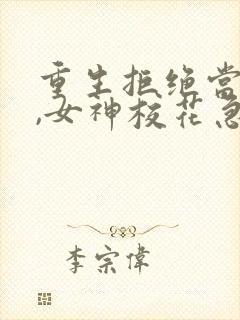 重生拒绝当
,女神校花急
李宗偉